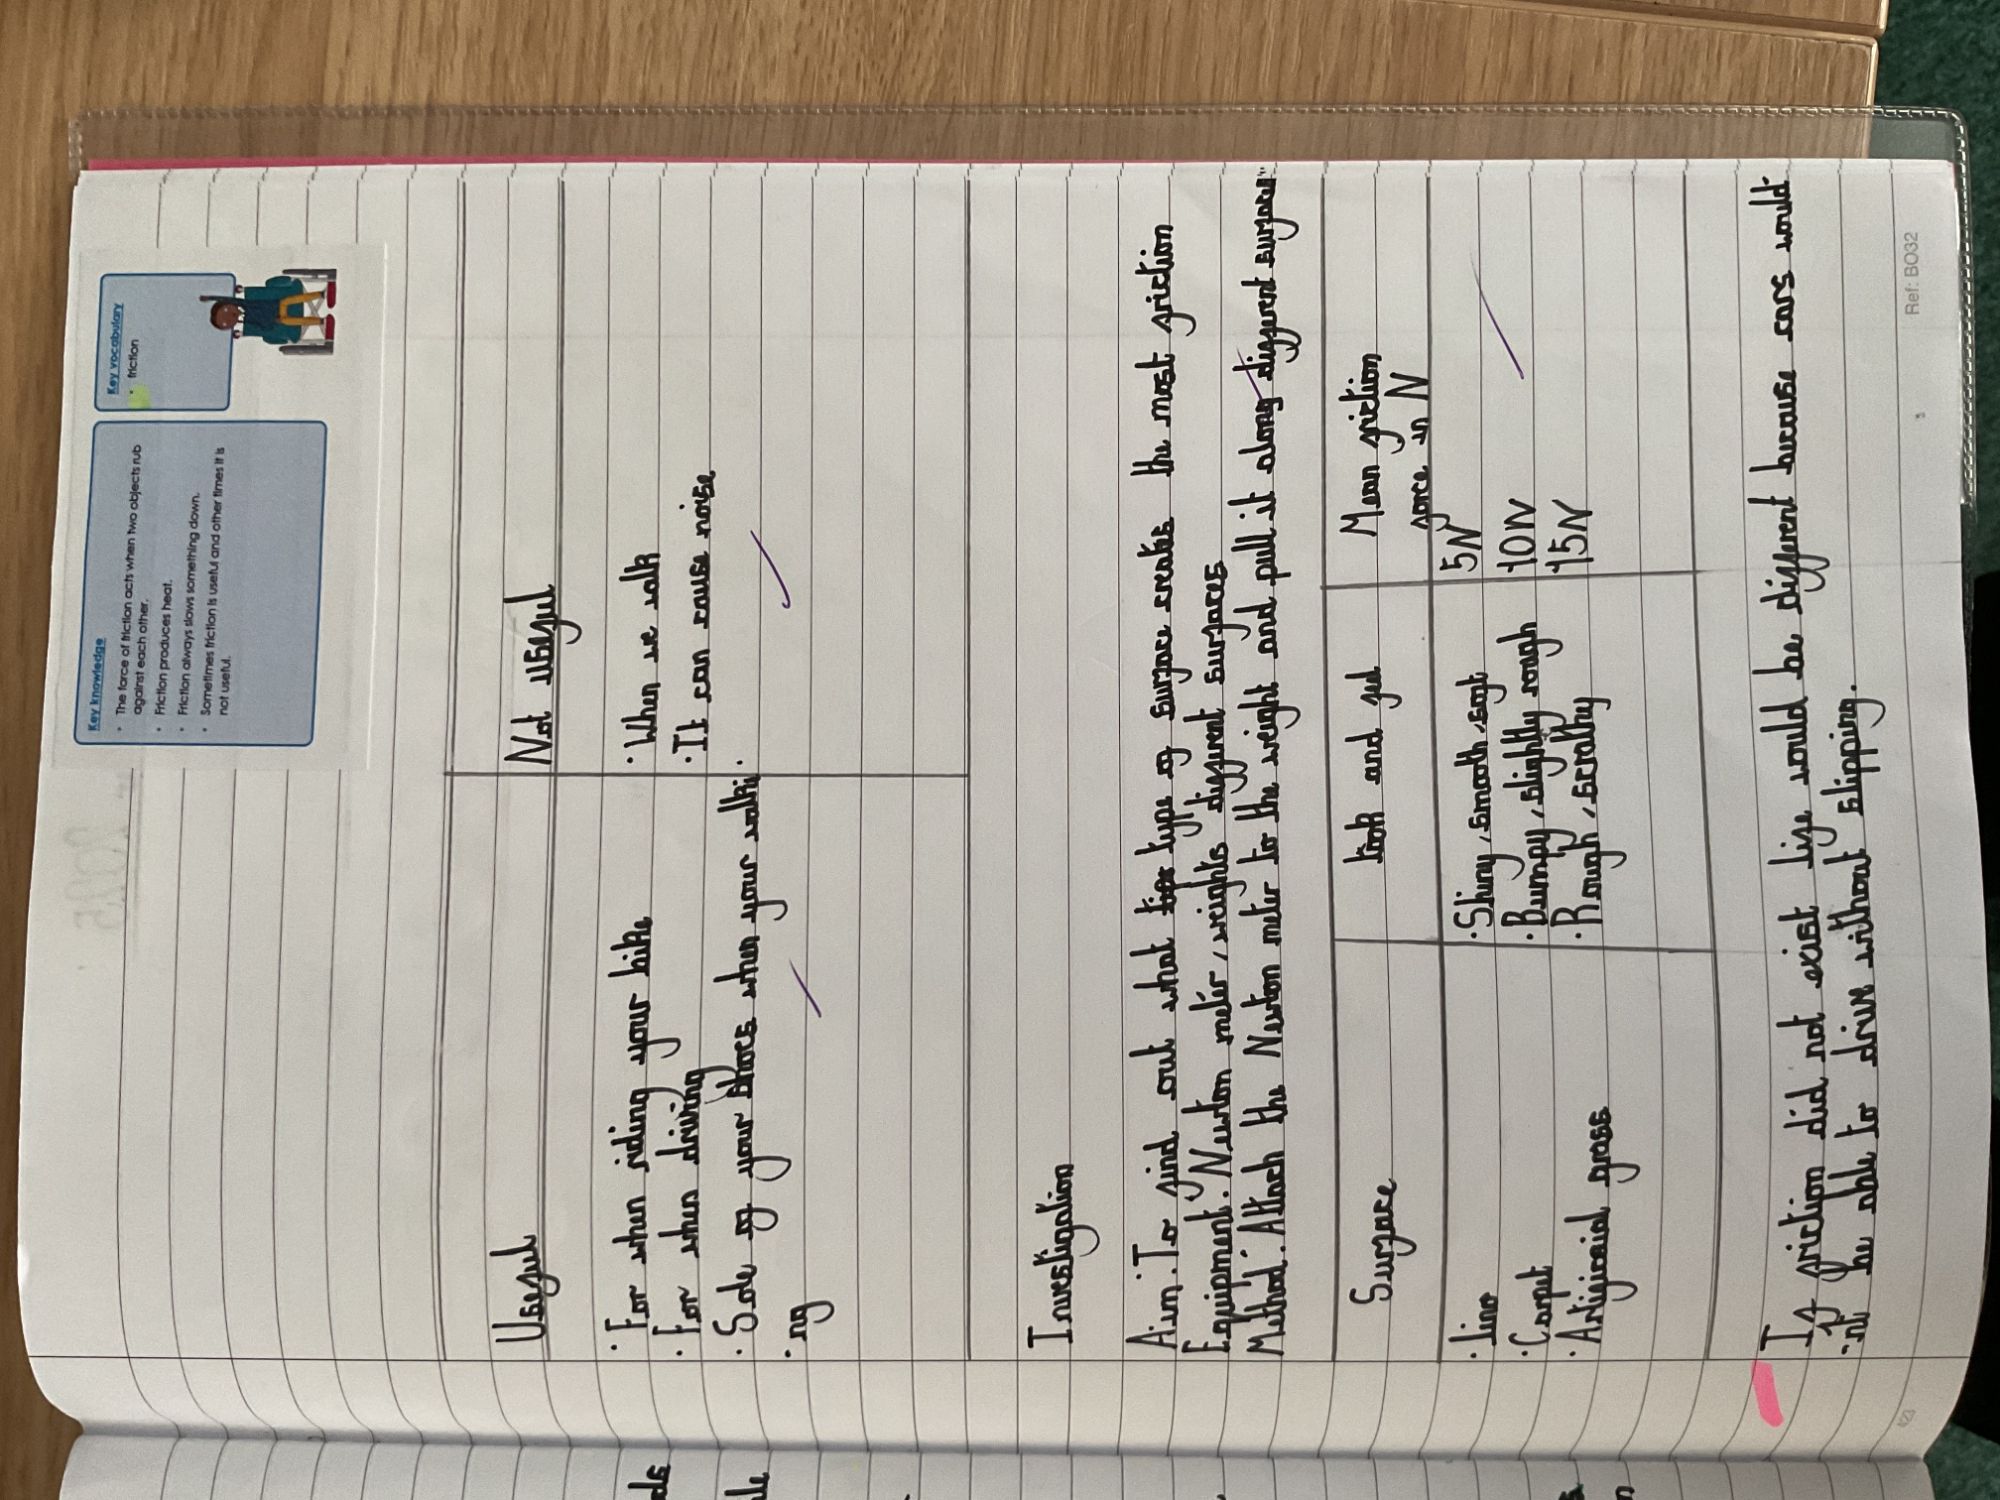 Key knowledge
• The force of friction acts when two objects rub
against each other.
• Friction produces heat.
• Friction always slows something down.
• Sometimes friction is useful and other times it is
not useful.
Key vocabulary
• friction
Useful
Not useful
· For when riding your bike
· For when driving
· Sole of your shoes when your walki
· ng
· When we walk
· It can cause noise
Investigation
Aim: To find out what type of surface creates the most friction
Equipment: Newton meter, weights different surfaces
Method: Attach the Newton meter to the weight and pull it along different surfaces
Surface
look and feel
Mean friction
force in N
· lino
· Shiny, smooth, soft
5N
· Carpet
· Bumpy, slightly rough
10N
· Artificial grass
· Rough, scratchy
15N
If friction did not exist life would be different because cars would
be able to drive without slipping.
Ref: BO32